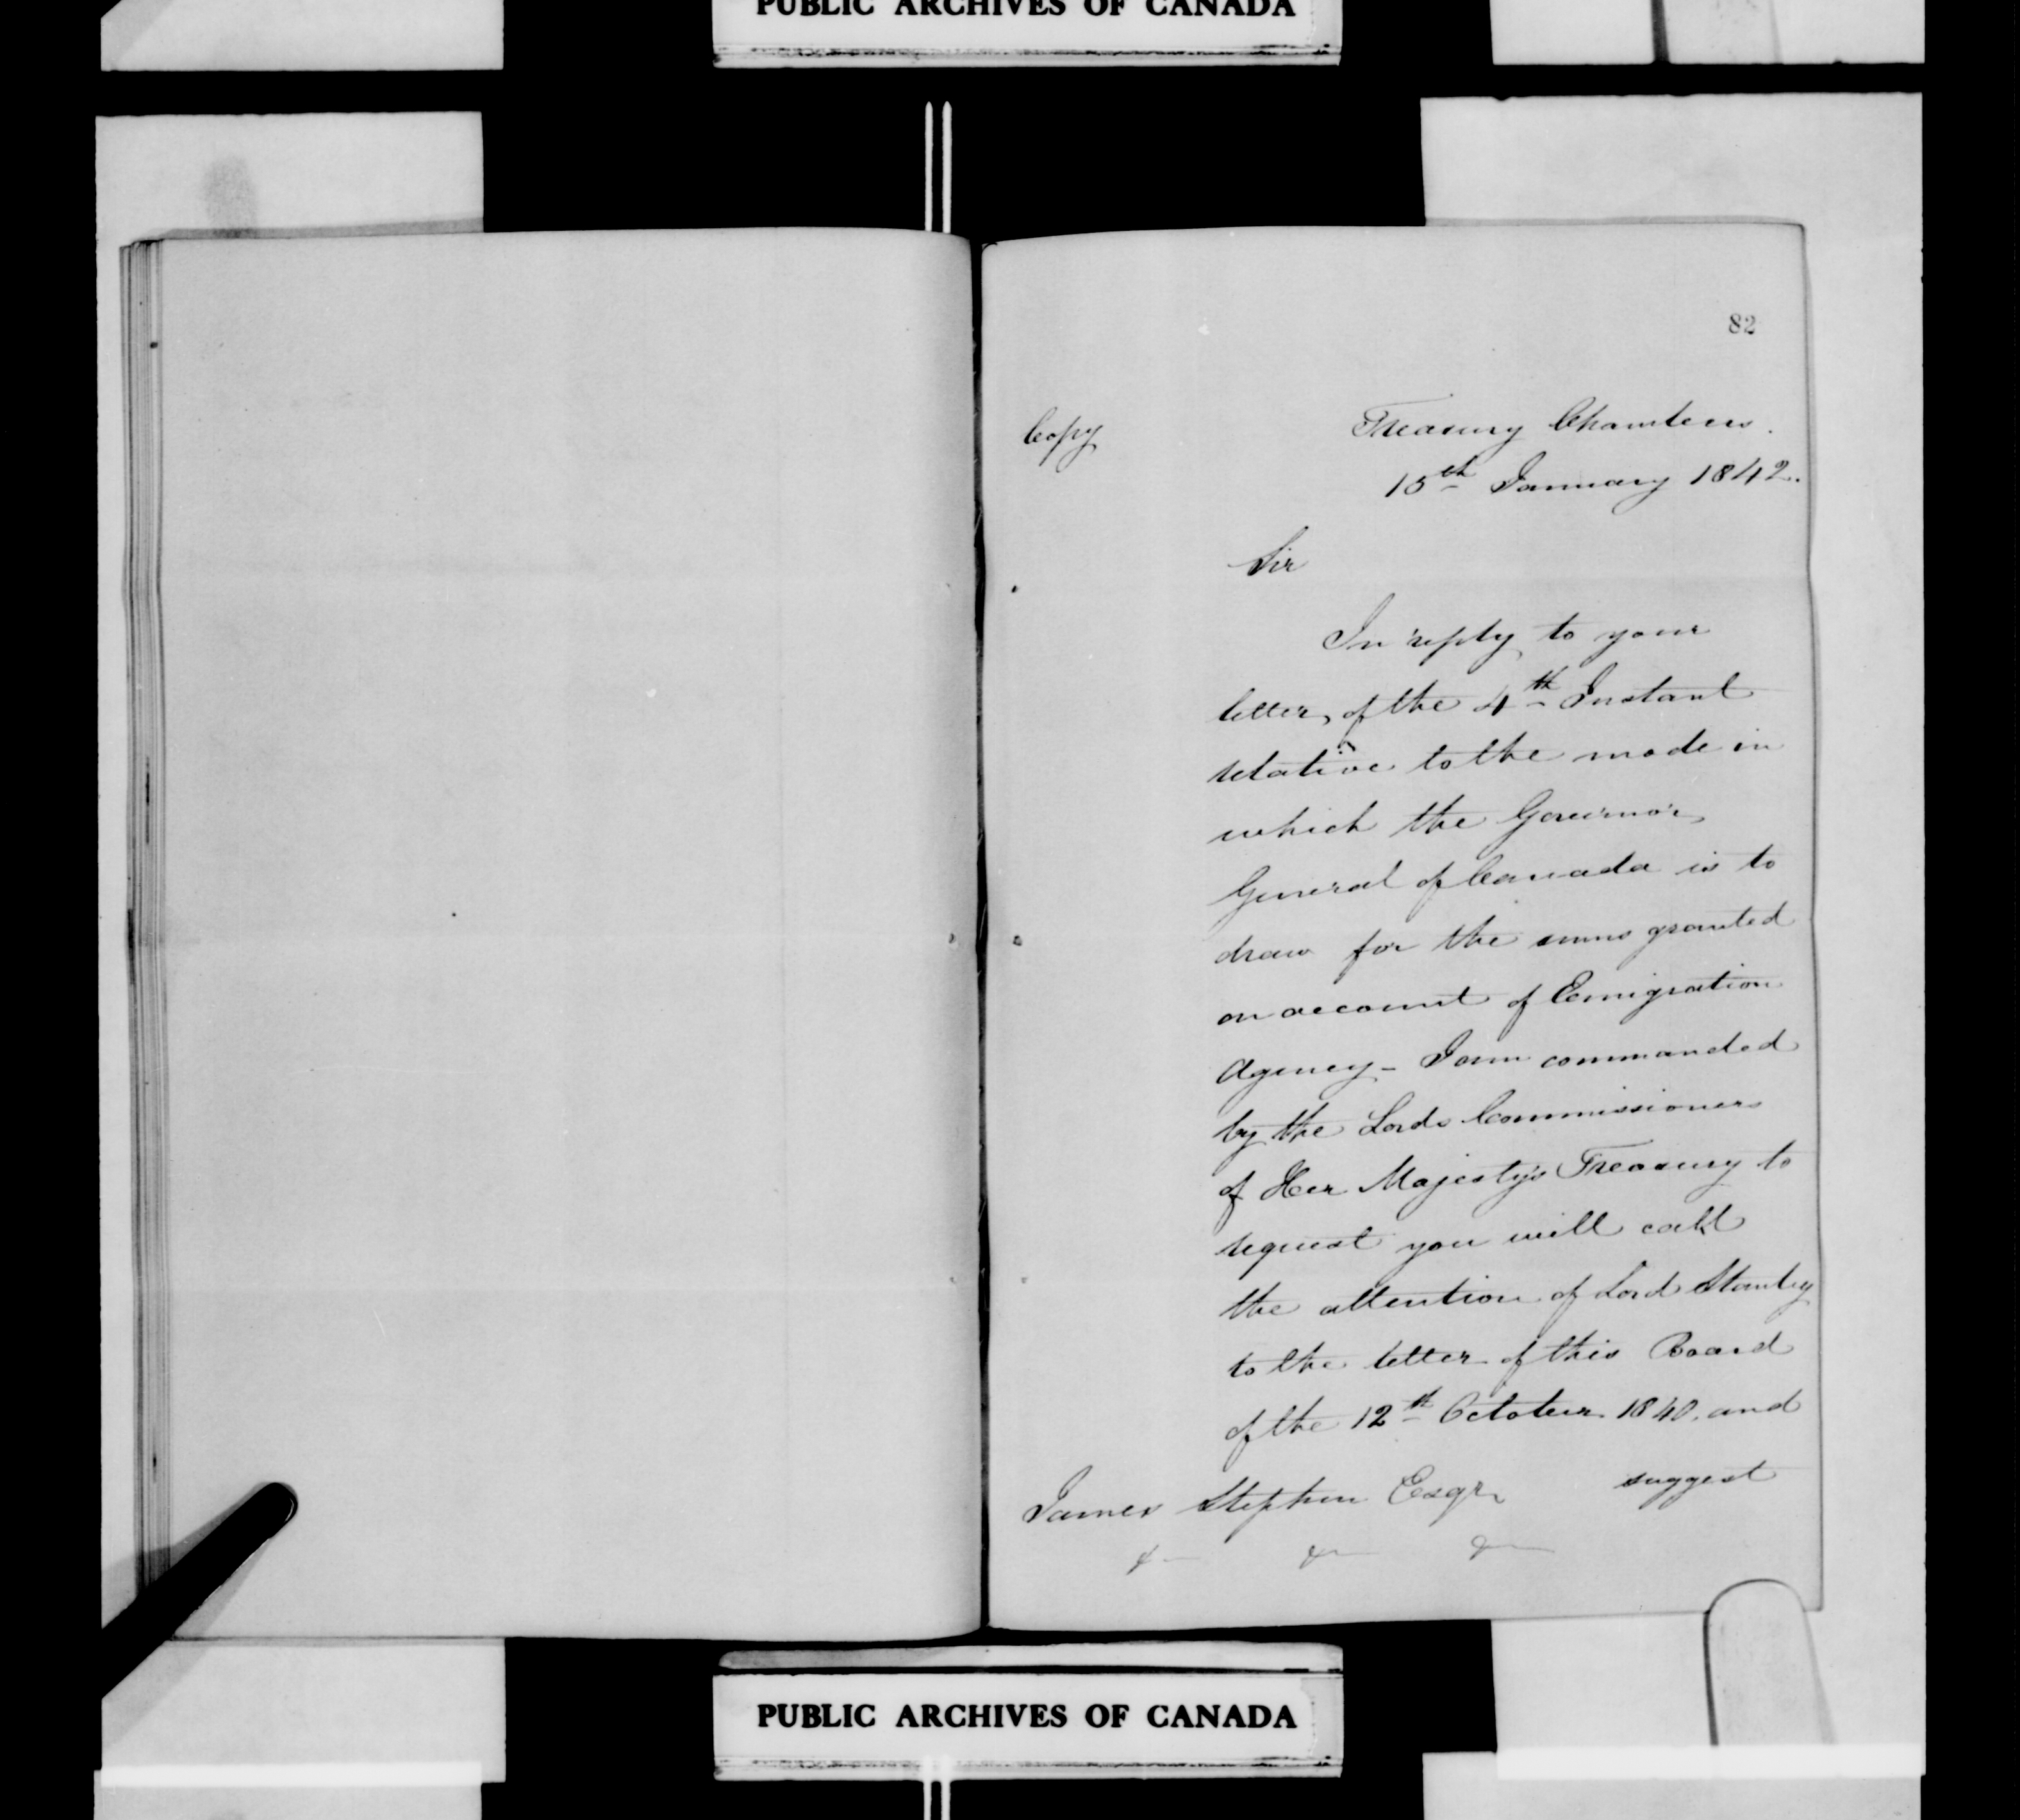 PUBLIC ARCHIVES OF CANADA
82
Copy
Treasury Chambers.
15th January 1842.
Sir
In reply to your
letter, of the 4th Instant
relative to the mode in
which the Governor
General of Canada is to
draw for the sums granted
on account of Emigration
Agency - I am commanded
by the Lords Commissioners
of Her Majesty's Treasury to
request you will call
the attention of Lord Stanley
to the letter of this Board
of the 12th October 1840. and
suggest
James Stephen Esqr
&- &- &-
PUBLIC ARCHIVES OF CANADA